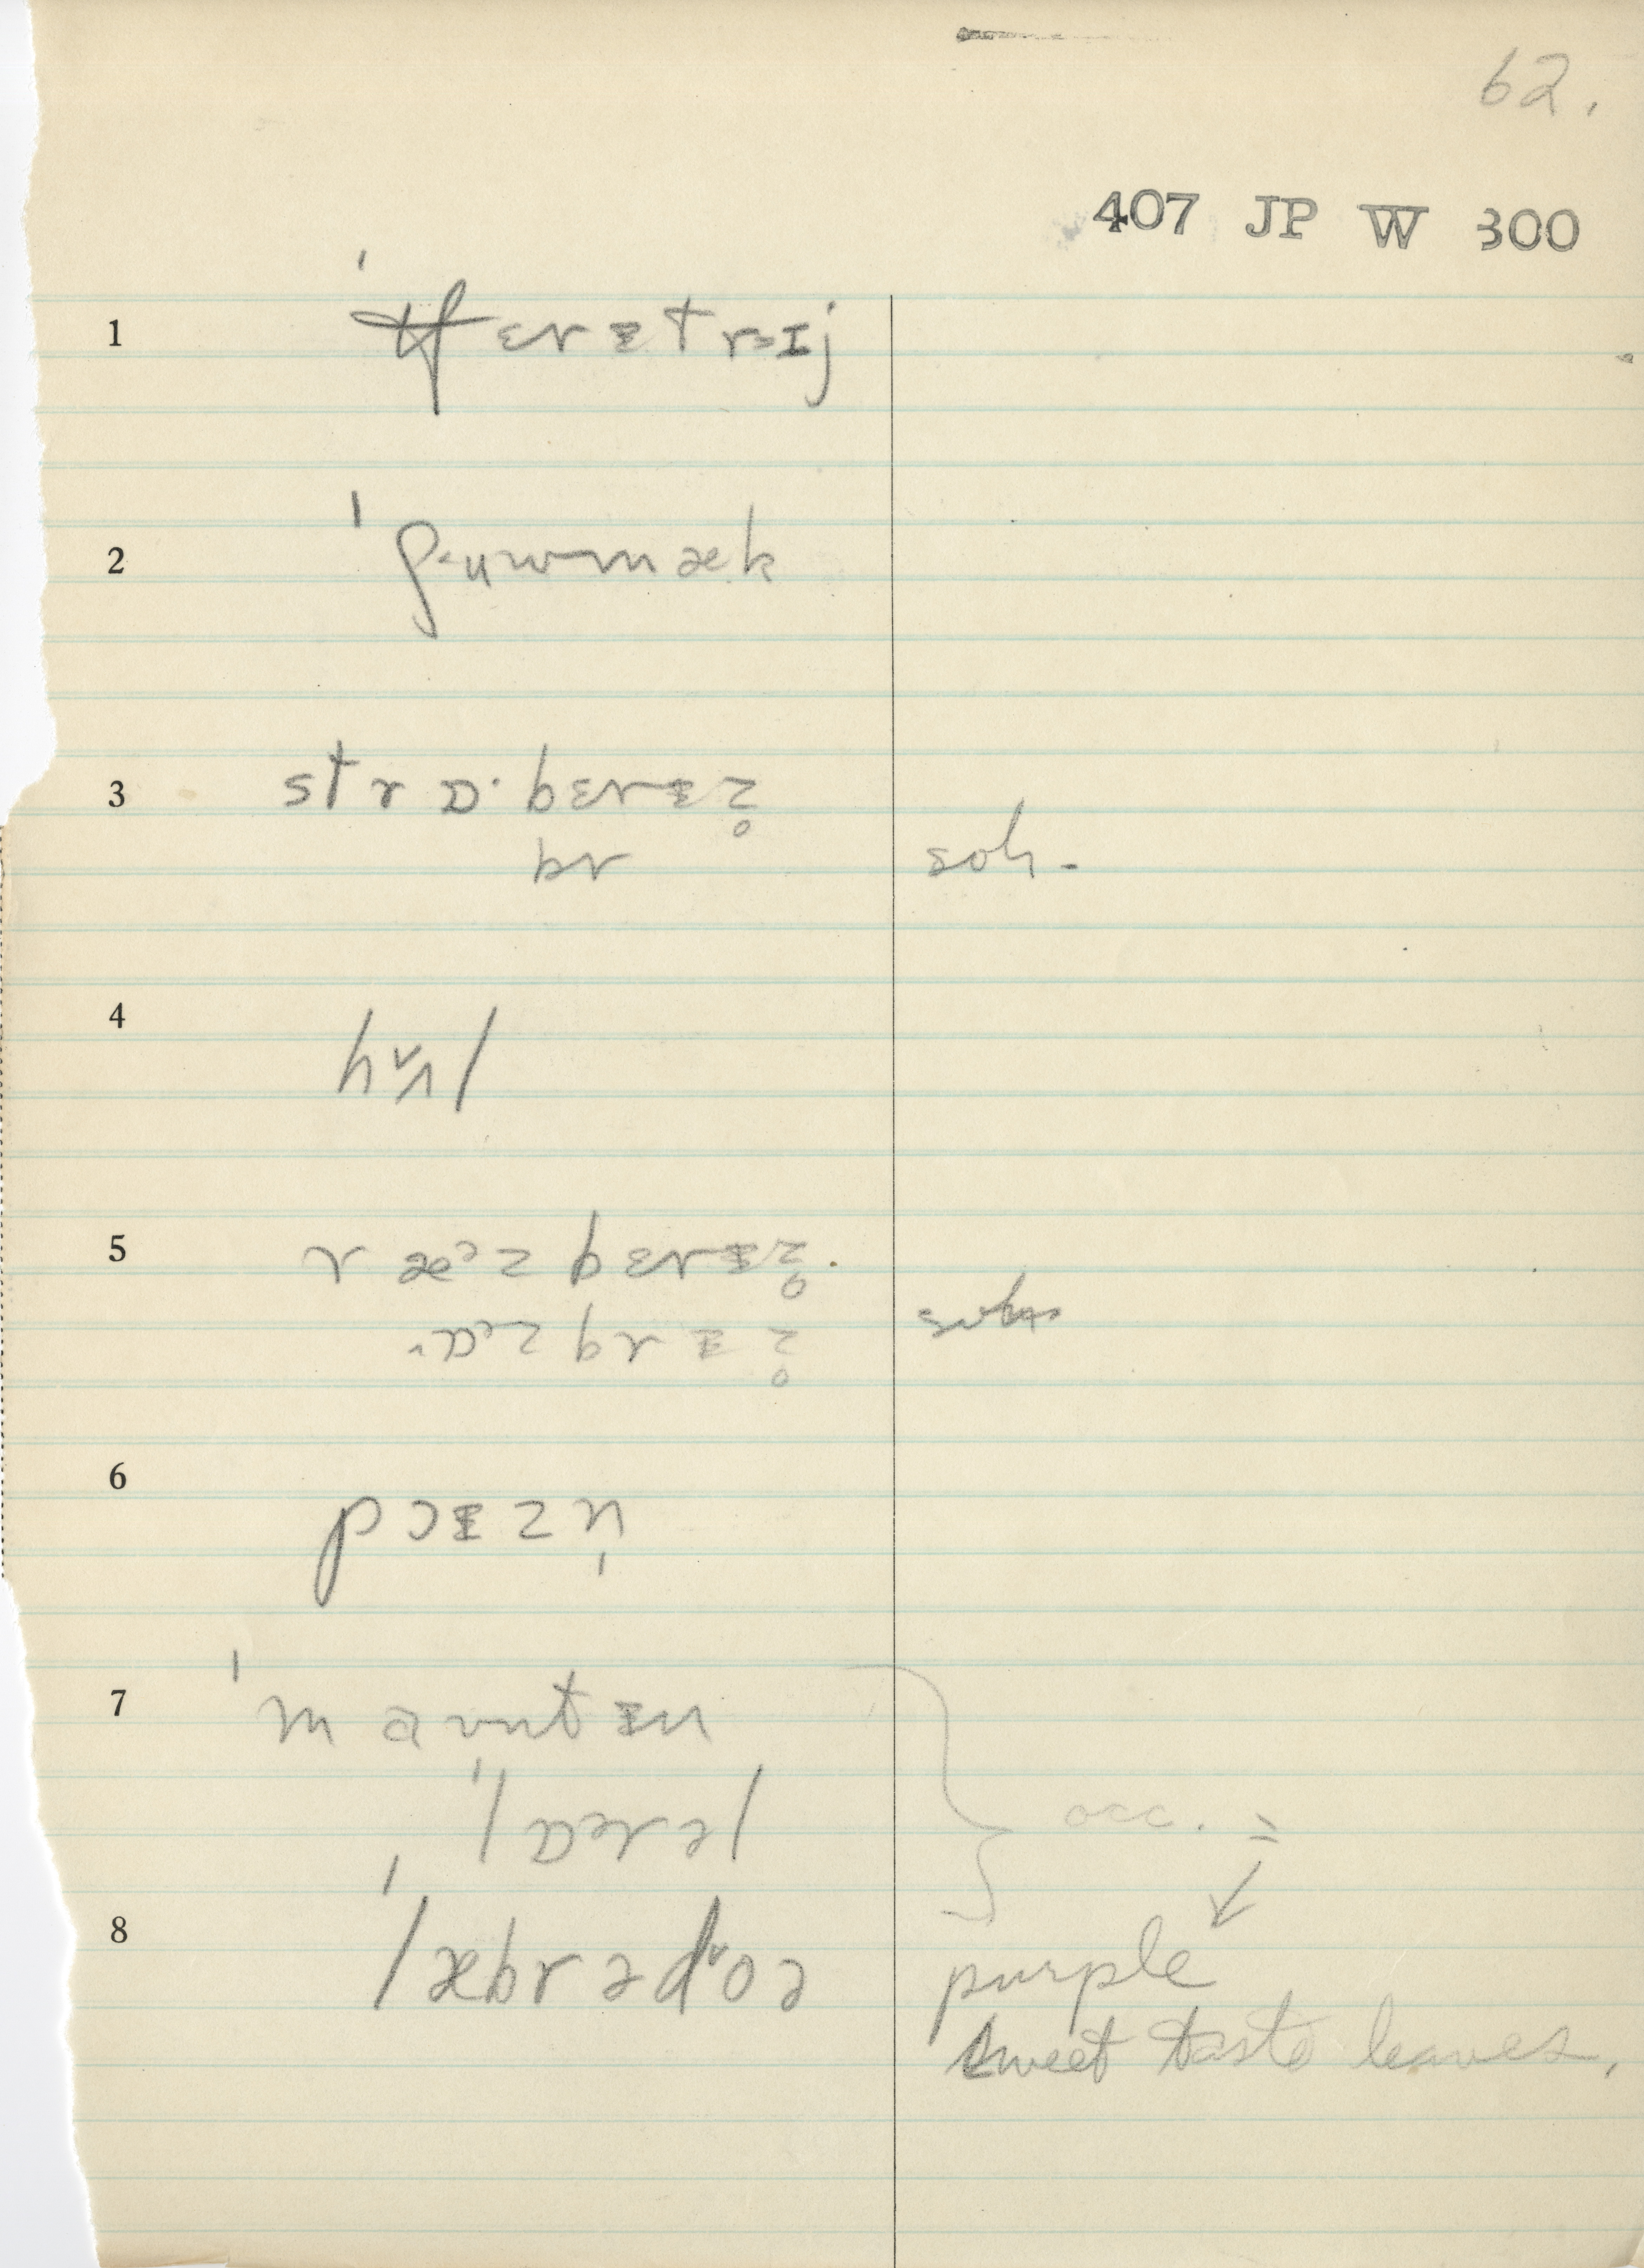 62.
407 JP W 300
1 ˈtʃɛrᵻtrɪj
2 ˈʃuwmæk
3 strɒ·bɛrᵻz̥
br soh-
4 hʌl
5 ræᵊzbɛrᵻz̥.
ɒᵊzbrᵻz̥
6 pɔᵻzn̩
7 ˈmaʊntᵻn
ˈlɒrəl occ. =
8 ˈlæbrədoə purple
sweet taste leaves.